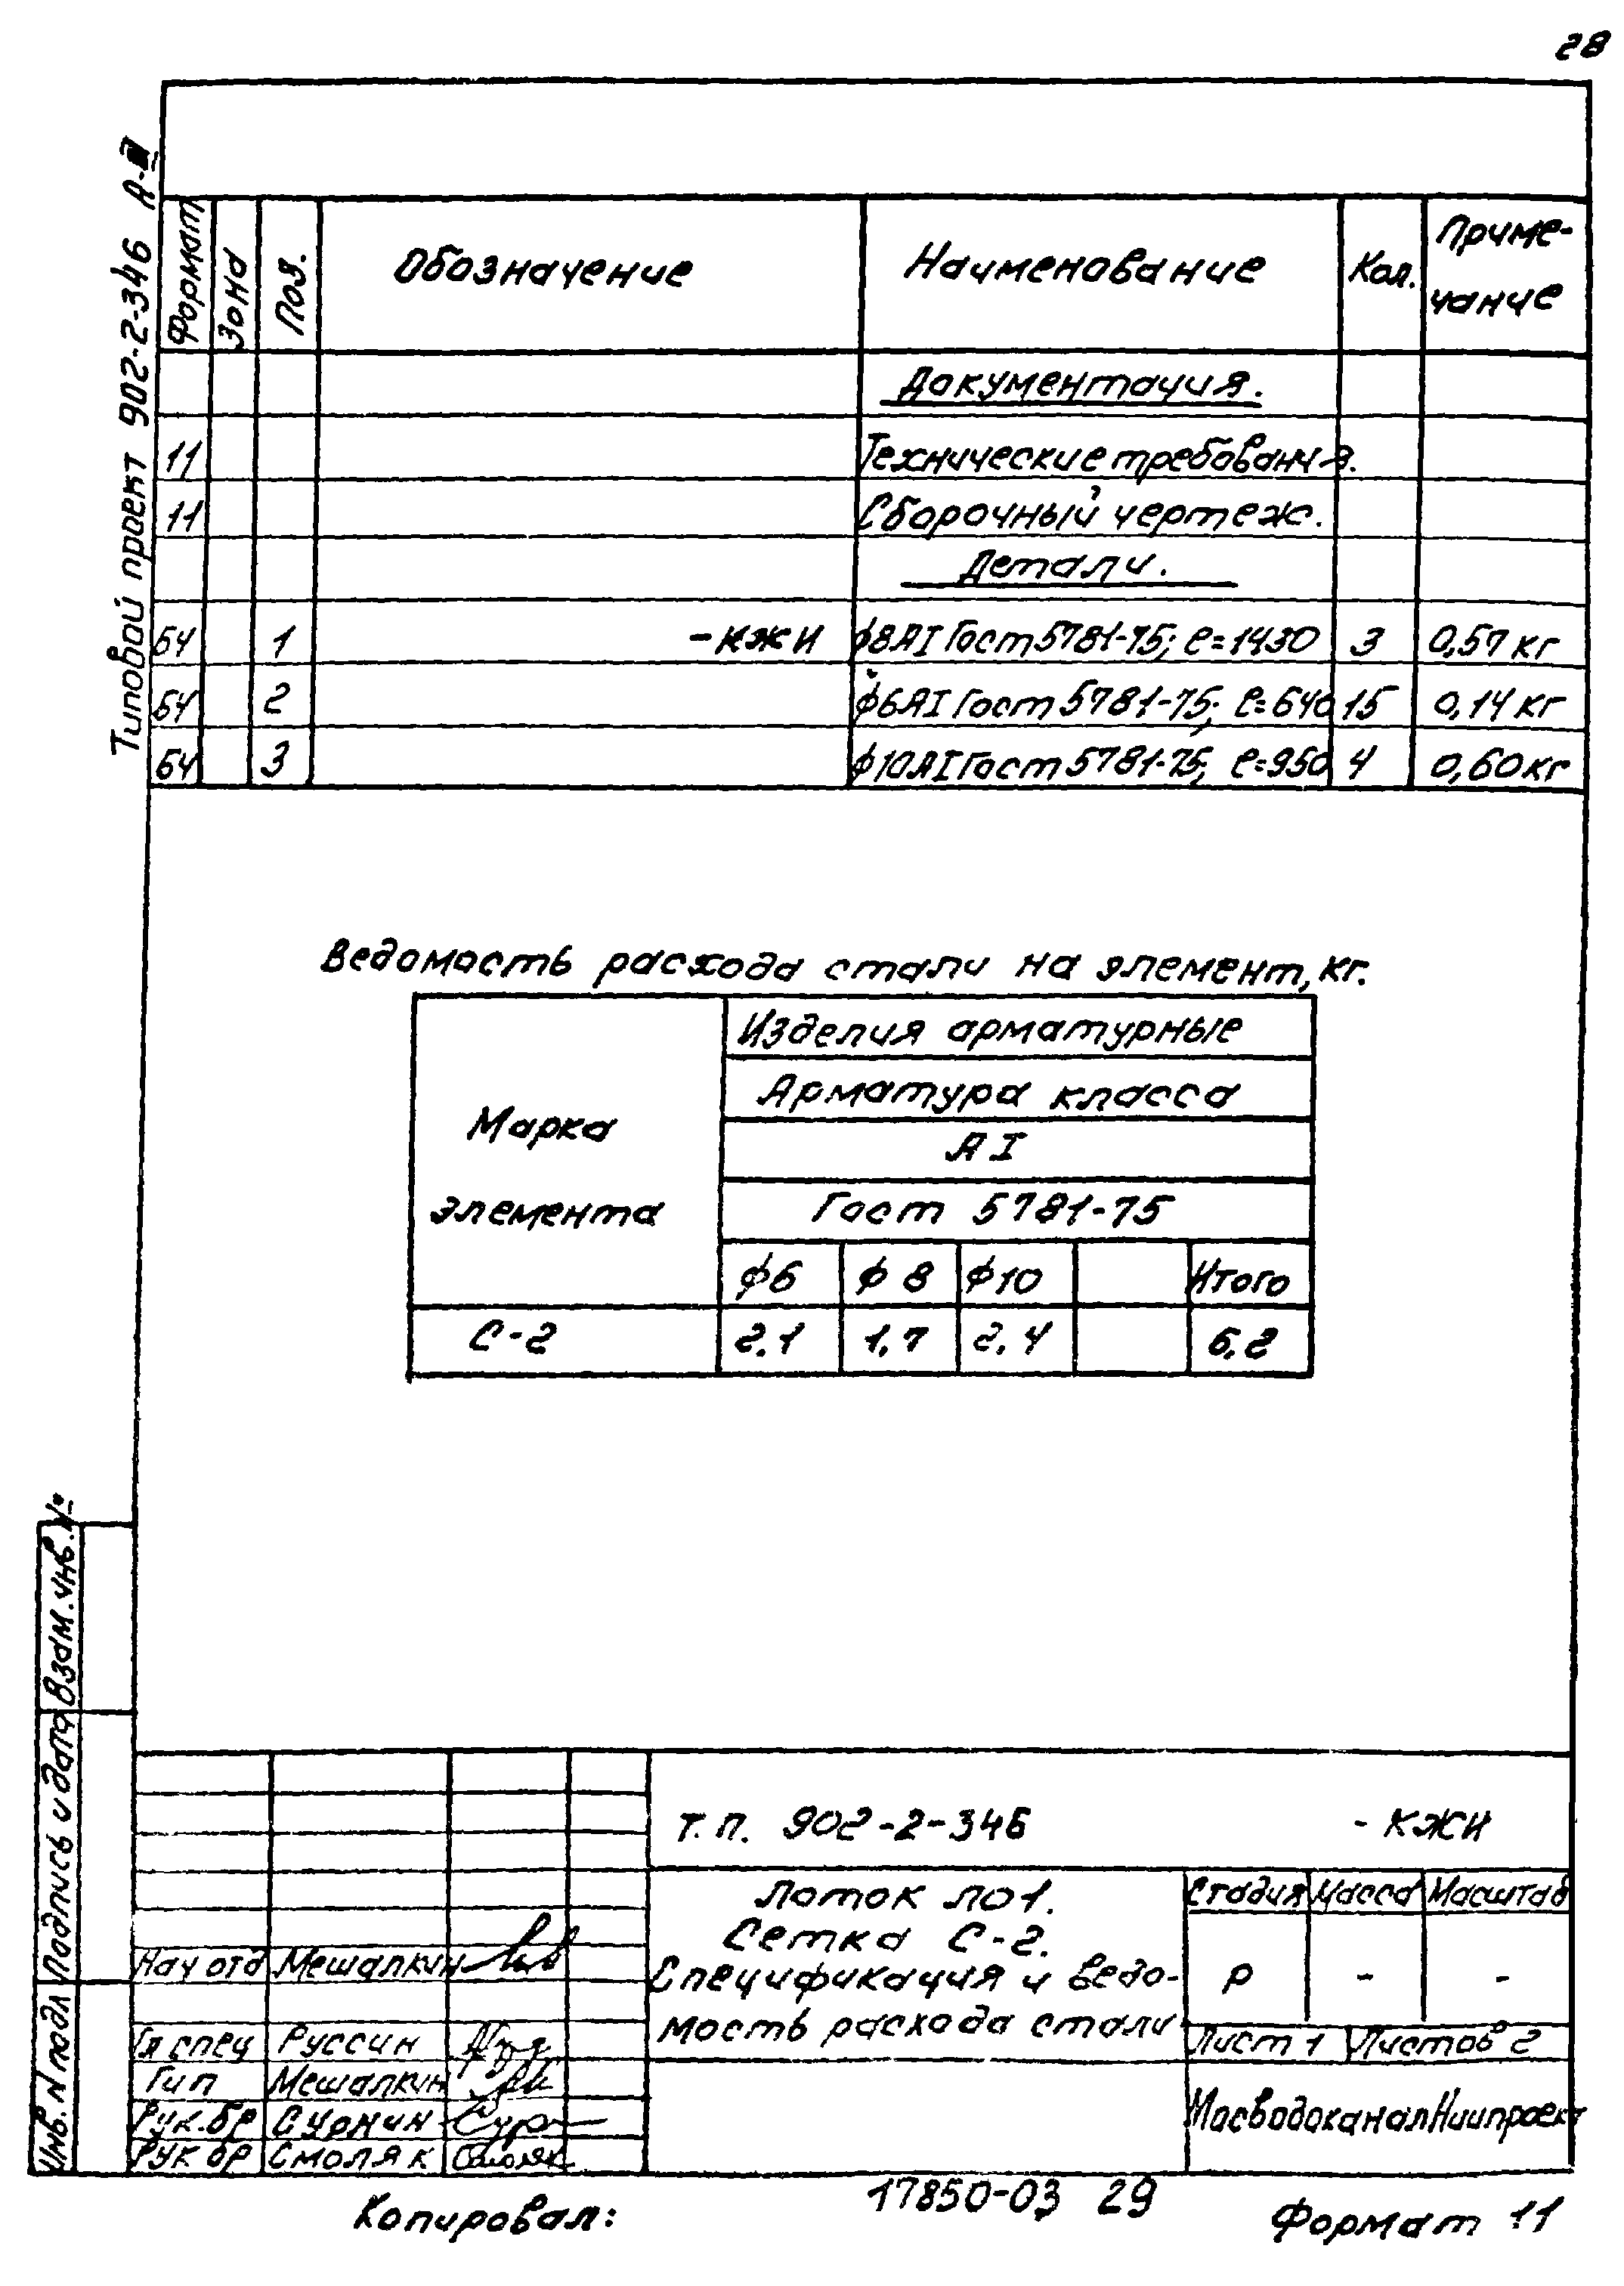 28
Типовой проект 902-2-346 А-
Формат Зона Поз. Обозначение Наименование Кол. Приме-
чание
Документация.
11 Технические требования.
11 Сборочный чертеж.
Детали.
БЧ 1 -КЖИ ϕ8АI Гост 5781-75; ℓ=1430 3 0,57 кг
БЧ 2 ϕ6АI Гост 5781-75; ℓ=640 15 0,14 кг
БЧ 3 ϕ10АI Гост 5781-75; ℓ=950 4 0,60 кг
Ведомость расхода стали на элемент, кг.
Марка
элемента
Изделия арматурные
Арматура класса
А I
Гост 5781-75
ϕ6 ϕ8 ϕ10 Итого
С-2 2.1 1,7 2,4 6,2
Взам. инв. №
Подпись и дата
Инв. N подл
т.п. 902-2-346 - КЖИ
Лоток ЛО1.
Сетка С-2.
Спецификация и ведо-
мость расхода стали
Стадия Масса Масштаб
Р - -
Лист 1 Листов 2
МосводоканалНиипроект
Нач отд Мешалкин
Гл спец Руссин
Гип Мешалкин
Рук.бр Сурнин Сур
Рук бр Смоляк Смоляк
Копировал: 17850-03 29 Формат 11